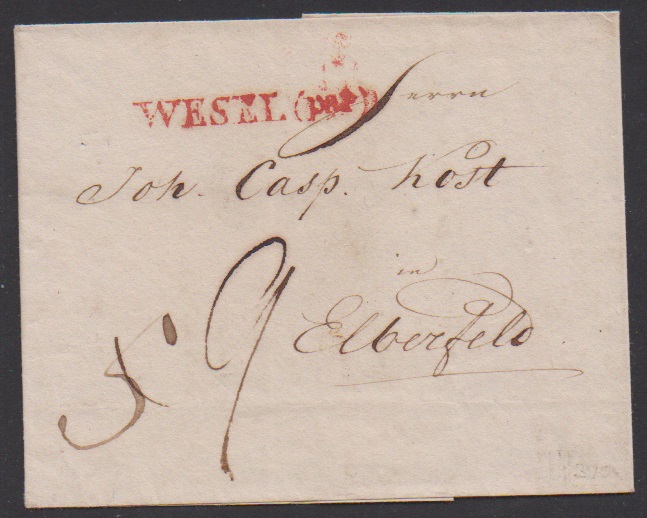 WESEL (par)
Herrn
Joh. Casp. Kost
in
Elberfeld.
9